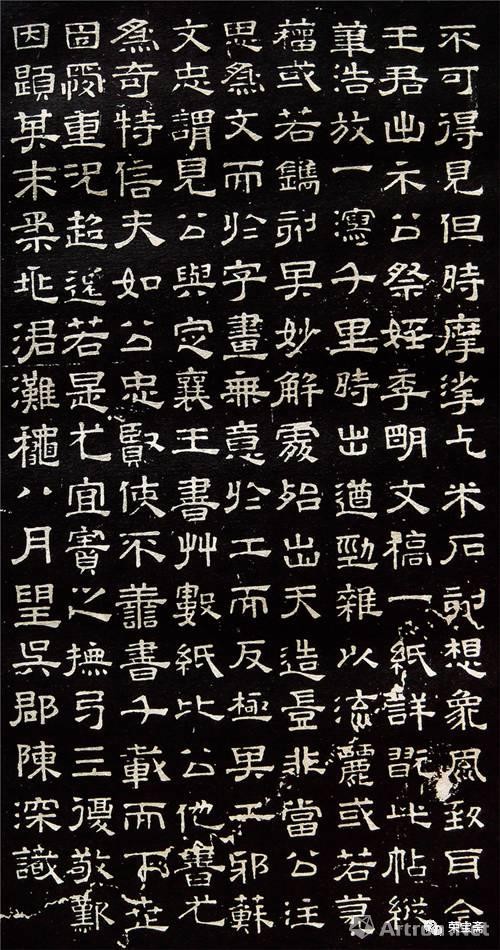 不可得見但時摩挲乞米石刻想象風致耳今
王君出示公祭姪季明文稿一紙詳玩此帖縱
筆浩放一瀉千里時出遒勁雜以流麗或若篆
籀或若鐫刻其妙解處殆出天造豈非當公注
思爲文而於字畫無意於工而反極其工邪蘇
文忠謂見公與定襄王書艸數紙比公他書尤
爲奇特信夫如公忠賢使不善書千載而下世
固愛重況超逸若是尤宜寶之撫弓三復敬歎
因題其末柔兆涒灘穐八月望吳郡陳深識
荣宝斋
Artron.Net